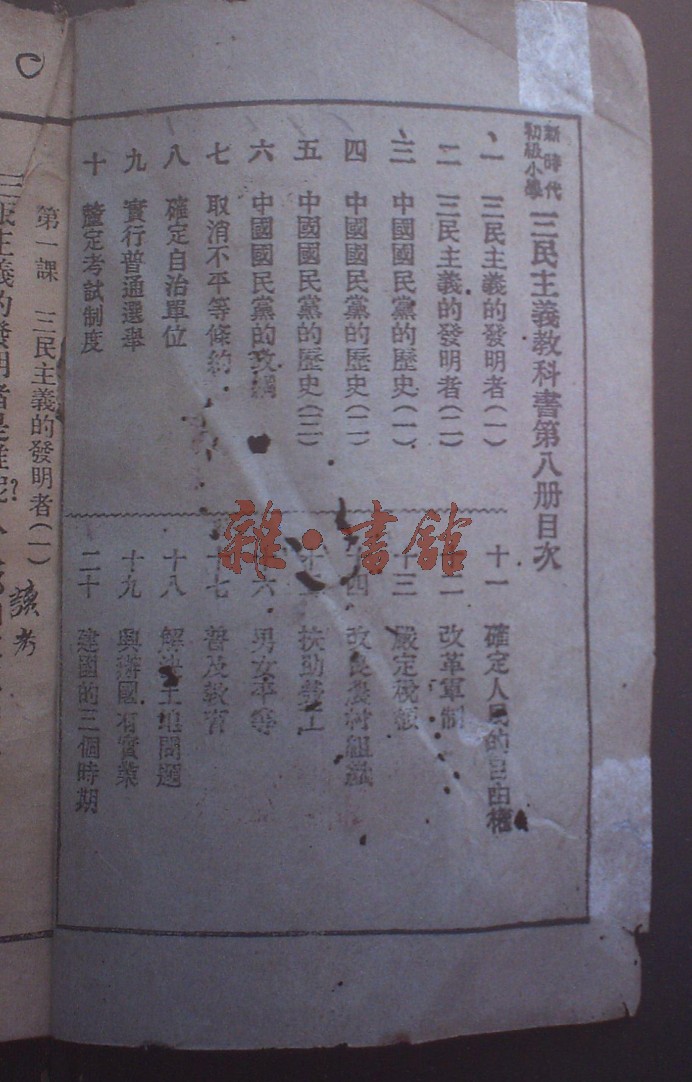 新時代
初級小學
三民主義教科書第八册目次
一 三民主義的發明者(一)
二 三民主義的發明者(二)
三 中國國民黨的歷史(一)
四 中國國民黨的歷史(二)
五 中國國民黨的歷史(三)
六 中國國民黨的政綱
七 取消不平等條約
八 確定自治單位
九 實行普通選舉
十 釐定考試制度
十一 確定人民的自由權
十二 改革軍制
十三 嚴定稅額
十四 改良農村組織
十五 扶助勞工
十六 男女平等
十七 普及教育
十八 解決土地問題
十九 興辦國有實業
二十 建國的三個時期
雜·書館
第一課 三民主義的發明者(一)
讀考
三民主義的發明者是誰呢?